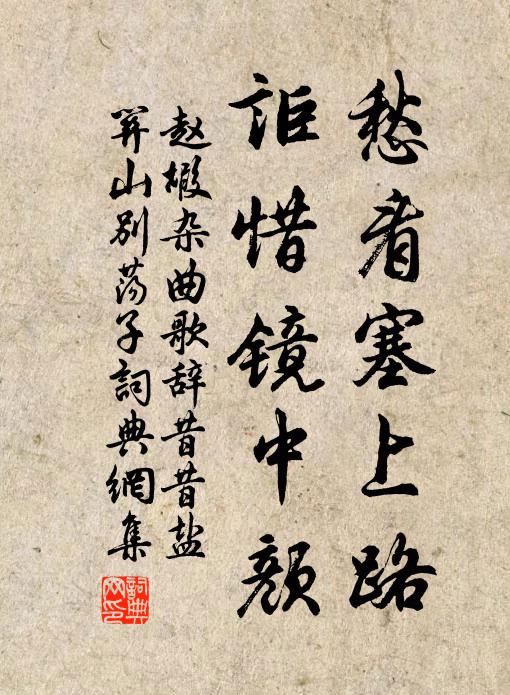 愁看塞上路
詎惜镜中颜
赵嘏杂曲歌辞昔昔盐
关山别荡子詞典網集
詞典